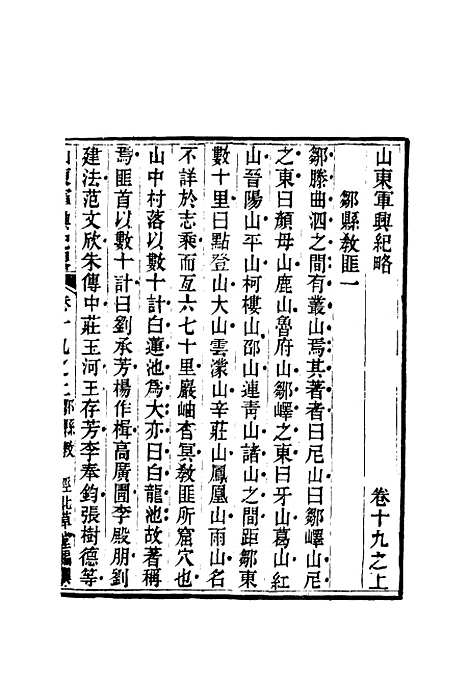 山東軍興紀略
卷十九之上
鄒縣教匪一
鄒滕曲泗之間有叢山焉其著者曰尼山曰鄒嶧山尼
之東曰顏母山鹿山魯府山鄒嶧之東曰牙山葛山紅
山晉陽山平山柯樓山邵山連靑山諸山之間距鄒東
數十里曰點登山大山雲濛山辛莊山鳳凰山雨山名
不詳於志乘而亙六七十里巖岫杳冥教匪所窟穴也
山中村落以數十計白蓮池爲大亦曰白龍池故著稱
焉匪首以數十計曰劉承芳楊作楫高廣圃李殿朋劉
建法范文欣朱傳中莊玉河王存芳李奉鈞張樹德等
卷十九之上
鄒縣教